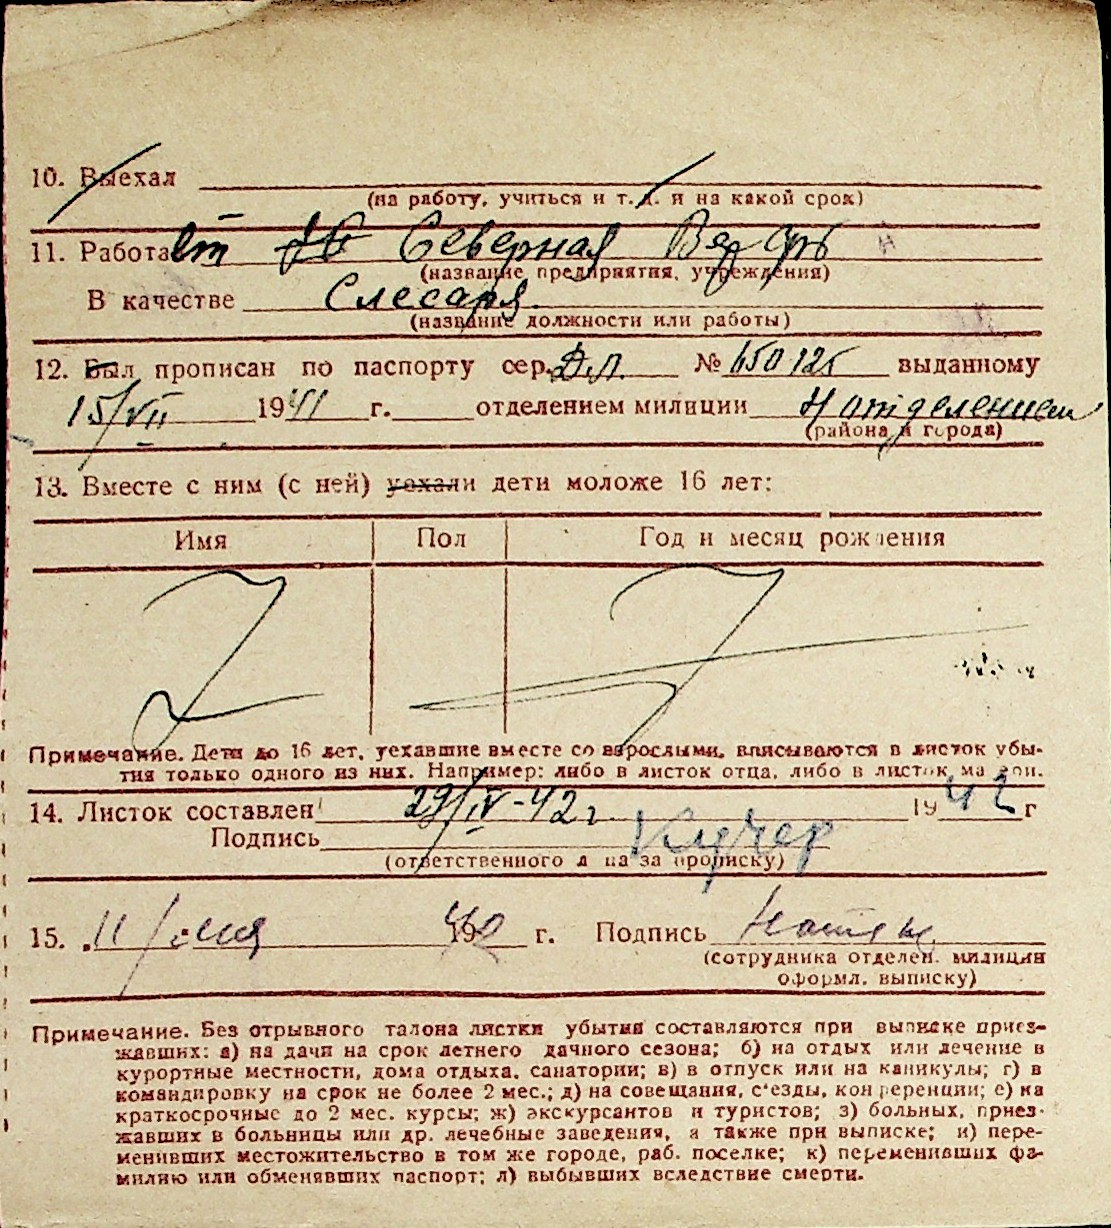 10. Выехал
(на работу, учиться и т. д. и на какой срок)
11. Работает Северная Верфь
(название предприятия, учреждения)
В качестве Слесаря.
(название должности или работы)
12. Был прописан по паспорту сер. Д.Л. № 650125 выданному
15/VII 1941 г. отделением милиции отделением
(района и города)
13. Вместе с ним (с ней) уехали дети моложе 16 лет:
Имя Пол Год и месяц рождения
Примечание. Дети до 16 лет, уехавшие вместе со взрослыми, вписываются в листок убы-
тия только одного из них. Например: либо в листок отца, либо в листок матери.
14. Листок составлен 29/IV-42 г. 1942 г
Подпись Кучер
(ответственного лица за прописку)
15. 11/ 1942 г. Подпись
(сотрудника отделен. милиции
оформл. выписку)
Примечание. Без отрывного талона листки убытия составляются при выписке приез-
жавших: а) на дачи на срок летнего дачного сезона; б) на отдых или лечение в
курортные местности, дома отдыха, санатории; в) в отпуск или на каникулы; г) в
командировку на срок не более 2 мес.; д) на совещания, с'езды, конференции; е) на
краткосрочные до 2 мес. курсы; ж) экскурсантов и туристов; з) больных, приез-
жавших в больницы или др. лечебные заведения, а также при выписке; и) пере-
менивших местожительство в том же городе, раб. поселке; к) переменивших фа-
милию или обменявших паспорт; л) выбывших вследствие смерти.